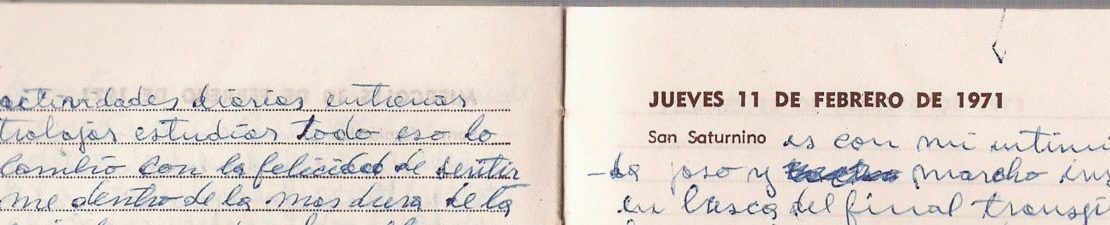 actividades diarias entrenar
trabajar estudiar todo eso lo
cambio con la felicidad de sentir
me dentro de la mas dura de la
JUEVES 11 DE FEBRERO DE 1971
San Saturnino es con mi intimi
-da y marcho
en busca del final